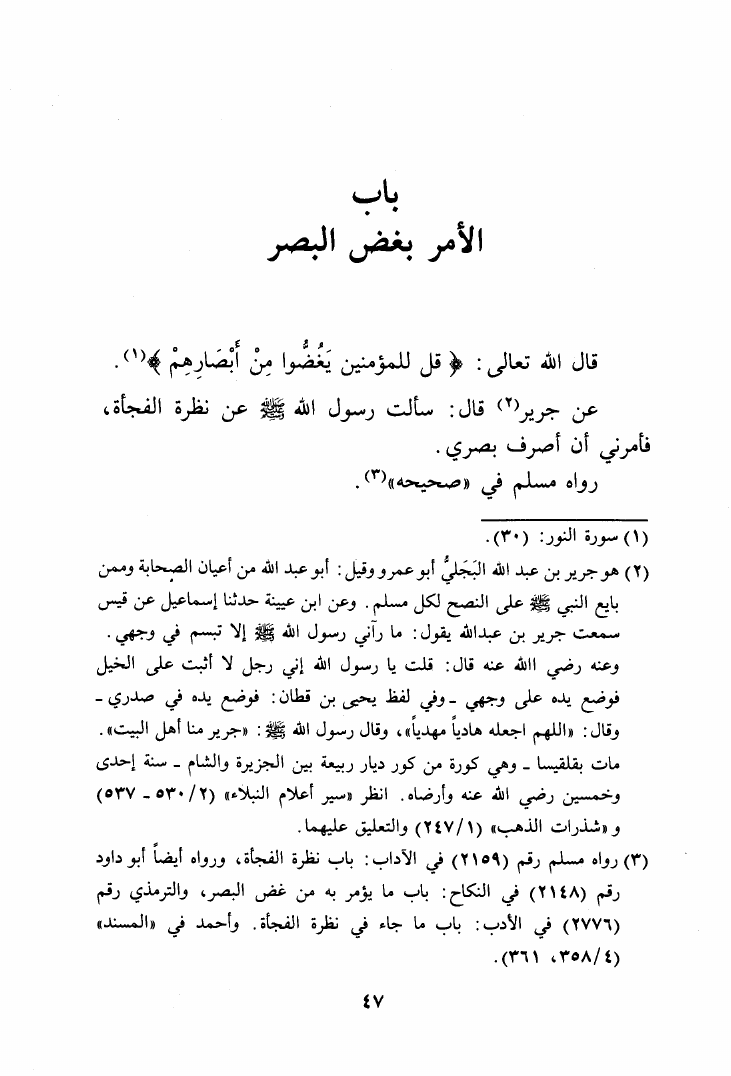 باب
الأمر بغض البصر
قال الله تعالى: ﴿ قل للمؤمنين يَغُضُّوا مِنْ أَبْصَارِهِمْ ﴾(١).
عن جرير(٢) قال: سألت رسول الله ﷺ عن نظرة الفجأة،
فأمرني أن أصرف بصري.
رواه مسلم في «صحيحه»(٣).
(١) سورة النور: (٣٠).
(٢) هو جرير بن عبد الله البَجَليُّ أبو عمرو وقيل: أبو عبد الله من أعيان الصحابة وممن
بايع النبي ﷺ على النصح لكل مسلم. وعن ابن عيينة حدثنا إسماعيل عن قيس
سمعت جرير بن عبدالله يقول: ما رآني رسول الله ﷺ إلا تبسم في وجهي.
وعنه رضي االله عنه قال: قلت يا رسول الله إني رجل لا أثبت على الخيل
فوضع يده على وجهي - وفي لفظ يحيى بن قطان: فوضع يده في صدري -
وقال: «اللهم اجعله هادياً مهدياً»، وقال رسول الله ﷺ: «جرير منا أهل البيت».
مات بقلقيسا - وهي كورة من كور ديار ربيعة بين الجزيرة والشام - سنة إحدى
وخمسين رضي الله عنه وأرضاه. انظر «سير أعلام النبلاء» (٥٣٠/٢ - ٥٣٧)
و «شذرات الذهب» (٢٤٧/١) والتعليق عليهما.
(٣) رواه مسلم رقم (٢١٥٩) في الآداب: باب نظرة الفجأة، ورواه أيضاً أبو داود
رقم (٢١٤٨) في النكاح: باب ما يؤمر به من غض البصر، والترمذي رقم
(٢٧٧٦) في الأدب: باب ما جاء في نظرة الفجأة. وأحمد في «المسند»
(٣٥٨/٤، ٣٦١).
٤٧